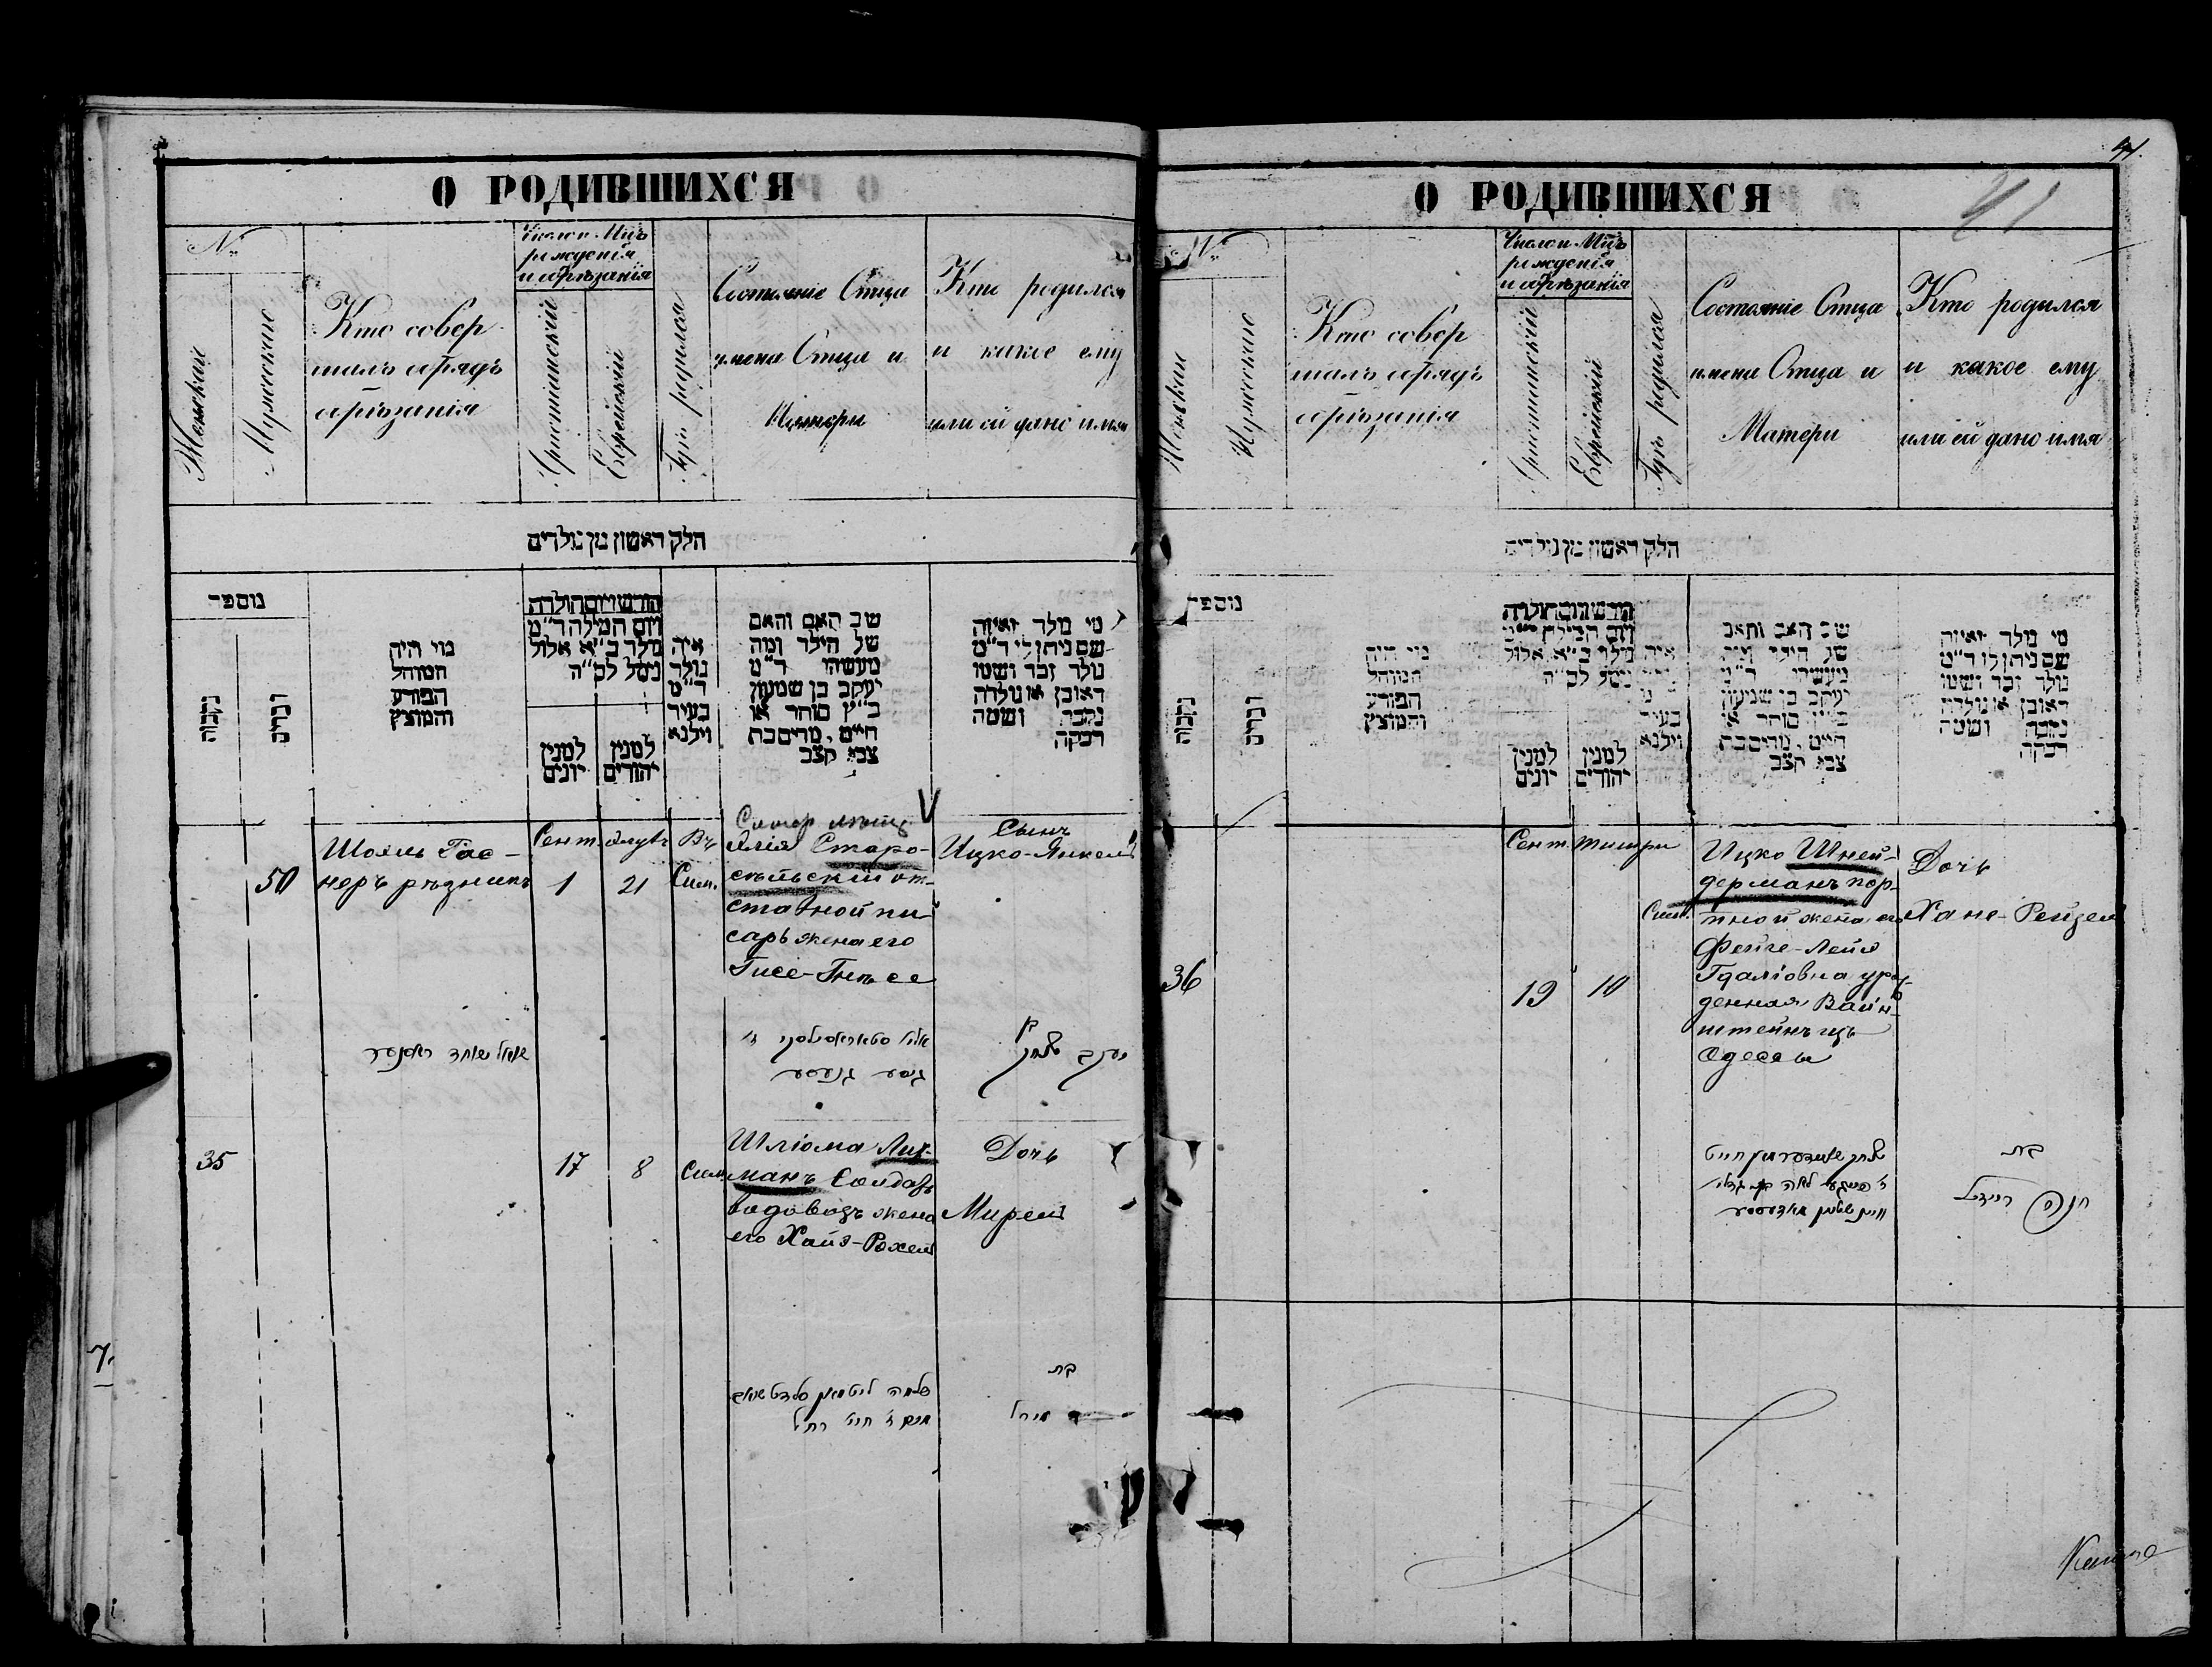 О РОДИВШИХСЯ
№
Женскіе
Мужескіе
Кто совер
шалъ обрядъ
обрѣзанія
Число и Мцъ
рожденія
и обрѣзанія
Христіанскій
Еврейскій
Гдѣ родился
Состояніе Отца
имена Отца и
Матери
Кто родился
и какое ему
или ей дано имя
חלק ראשון מן נולדים
מספר
נקבות
זכרים
מי היה
המוהל
הפורע
והמוצץ
חודש ויום הולדה
ויום המילה ר״מ
נולד כ״א אלול
נימל לב״ה
למנין
יונים
למנין
יהודים
איה
נולד
ר״מ
בעיר
וילנא
שם האב והאם
של הילד ומה
מעשיהו ר״מ
יעקב בן שמעון
כ״ץ סוחר או
חייט, מרים בת
צבי קצב
מי נולד ואיזה
שם ניתן לו ר״מ
נולד זכר ושמו
ראובן או נולדה
נקבה ושמה
רבקה
50
Шоель Гас-
неръ рѣзникъ
Сент.
1
Элулъ
21
Въ
Сим.
Элія Старо-
сельскій от-
ставной пи-
сарь жена его
Гисе-Гнесе
Сынъ
Ицко-Янкель
בן
35
17
8
Сим.
Шліома Лит-
манъ Солдатъ
водовозъ жена
его Хая-Рохель
Дочь
Мирель
שלמה ליטמאן
חי׳ רחל
בת
מירל
7.
41.
41
О РОДИВШИХСЯ
№
Женскіе
Мужескіе
Кто совер
шалъ обрядъ
обрѣзанія
Число и Мцъ
рожденія
и обрѣзанія
Христіанскій
Еврейскій
Гдѣ родился
Состояніе Отца
имена Отца и
Матери
Кто родился
и какое ему
или ей дано имя
חלק ראשון מן נולדים
מספר
נקבות
זכרים
מי היה
המוהל
הפורע
והמוצץ
חודש ויום הולדה
ויום המילה ר״מ
נולד כ״א אלול
נימל לב״ה
למנין
יונים
למנין
יהודים
איה
נולד
ר״מ
בעיר
וילנא
שם האב והאם
של הילד ומה
מעשיהו ר״מ
יעקב בן שמעון
כ״ץ סוחר או
חייט, מרים בת
צבי קצב
מי נולד ואיזה
שם ניתן לו ר״מ
נולד זכר ושמו
ראובן או נולדה
נקבה ושמה
רבקה
36
Сент.
19
Тишри
10
Сим.
Ицко Шней-
дерманъ пор-
тной жена его
Фейге-Лея
Гдаліовна уро-
жденная Вайн-
штейнъ изъ
Одессы
Дочь
Хане-Рейзель
יצחק שניידערמאן חייט
בת
חנה רייזל